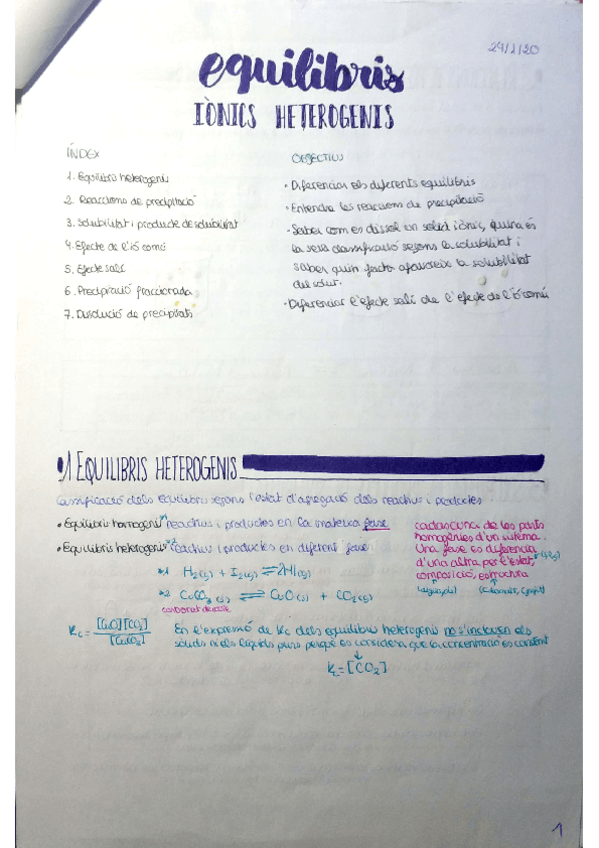 29/1/20
equilibris
IÒNICS HETEROGENIS
ÍNDEX
1. Equilibris heterogenis
2. Reaccions de precipitació
3. Solubilitat i producte de solubilitat
4. Efecte de l'ió comú
5. Efecte salí
6. Precipitació fraccionada
7. Dissolució de precipitats
OBJECTIUS
· Diferenciar els diferents equilibris
· Entendre les reaccions de precipitació
· Saber com es dissol un sòlid iònic, quina és
la seva classificació segons la solubilitat i
saber quin factor afavoreix la solubilitat
del solut.
· Diferenciar l'efecte salí de l'efecte de l'ió comú
1 EQUILIBRIS HETEROGENIS
Classificació dels equilibris segons l'estat d'agregació dels reactius i productes
• Equilibris homogenis *1 reactius i productes en la mateixa fase
• Equilibris heterogenis *2 reactius i productes en diferent fase
*1 H₂(g) + I₂(g) ⇌ 2HI(g)
*2 CuCO₃(s) ⇌ CuO(s) + CO₂(g)
carbonat de coure
cadascuna de les parts
homogènies d'un sistema.
Una fase es diferencia
d'una altra per l'estat, (s, l, g)
composició, estructura
(C diamant, C grafit)
Kc = [CuO][CO₂] / [CuCO₃]
En l'expressió de Kc dels equilibris heterogenis no s'inclouen els
sòlids ni els líquids purs perquè es considera que la concentració és constant
Kc = [CO₂]
1